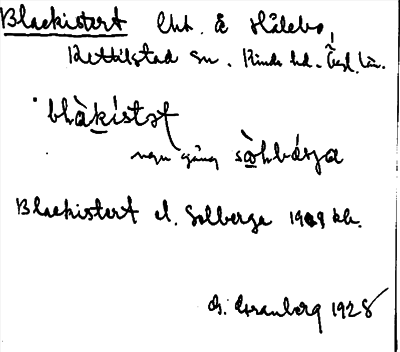 Blackistert lht. å Hålebo,
Kettilstad sn. Kinds hd. Ögl. län.
blàkístət
ngn gång sòlbárga
Blackistert el. Solberga 1909 kb.
G. Granberg 1928